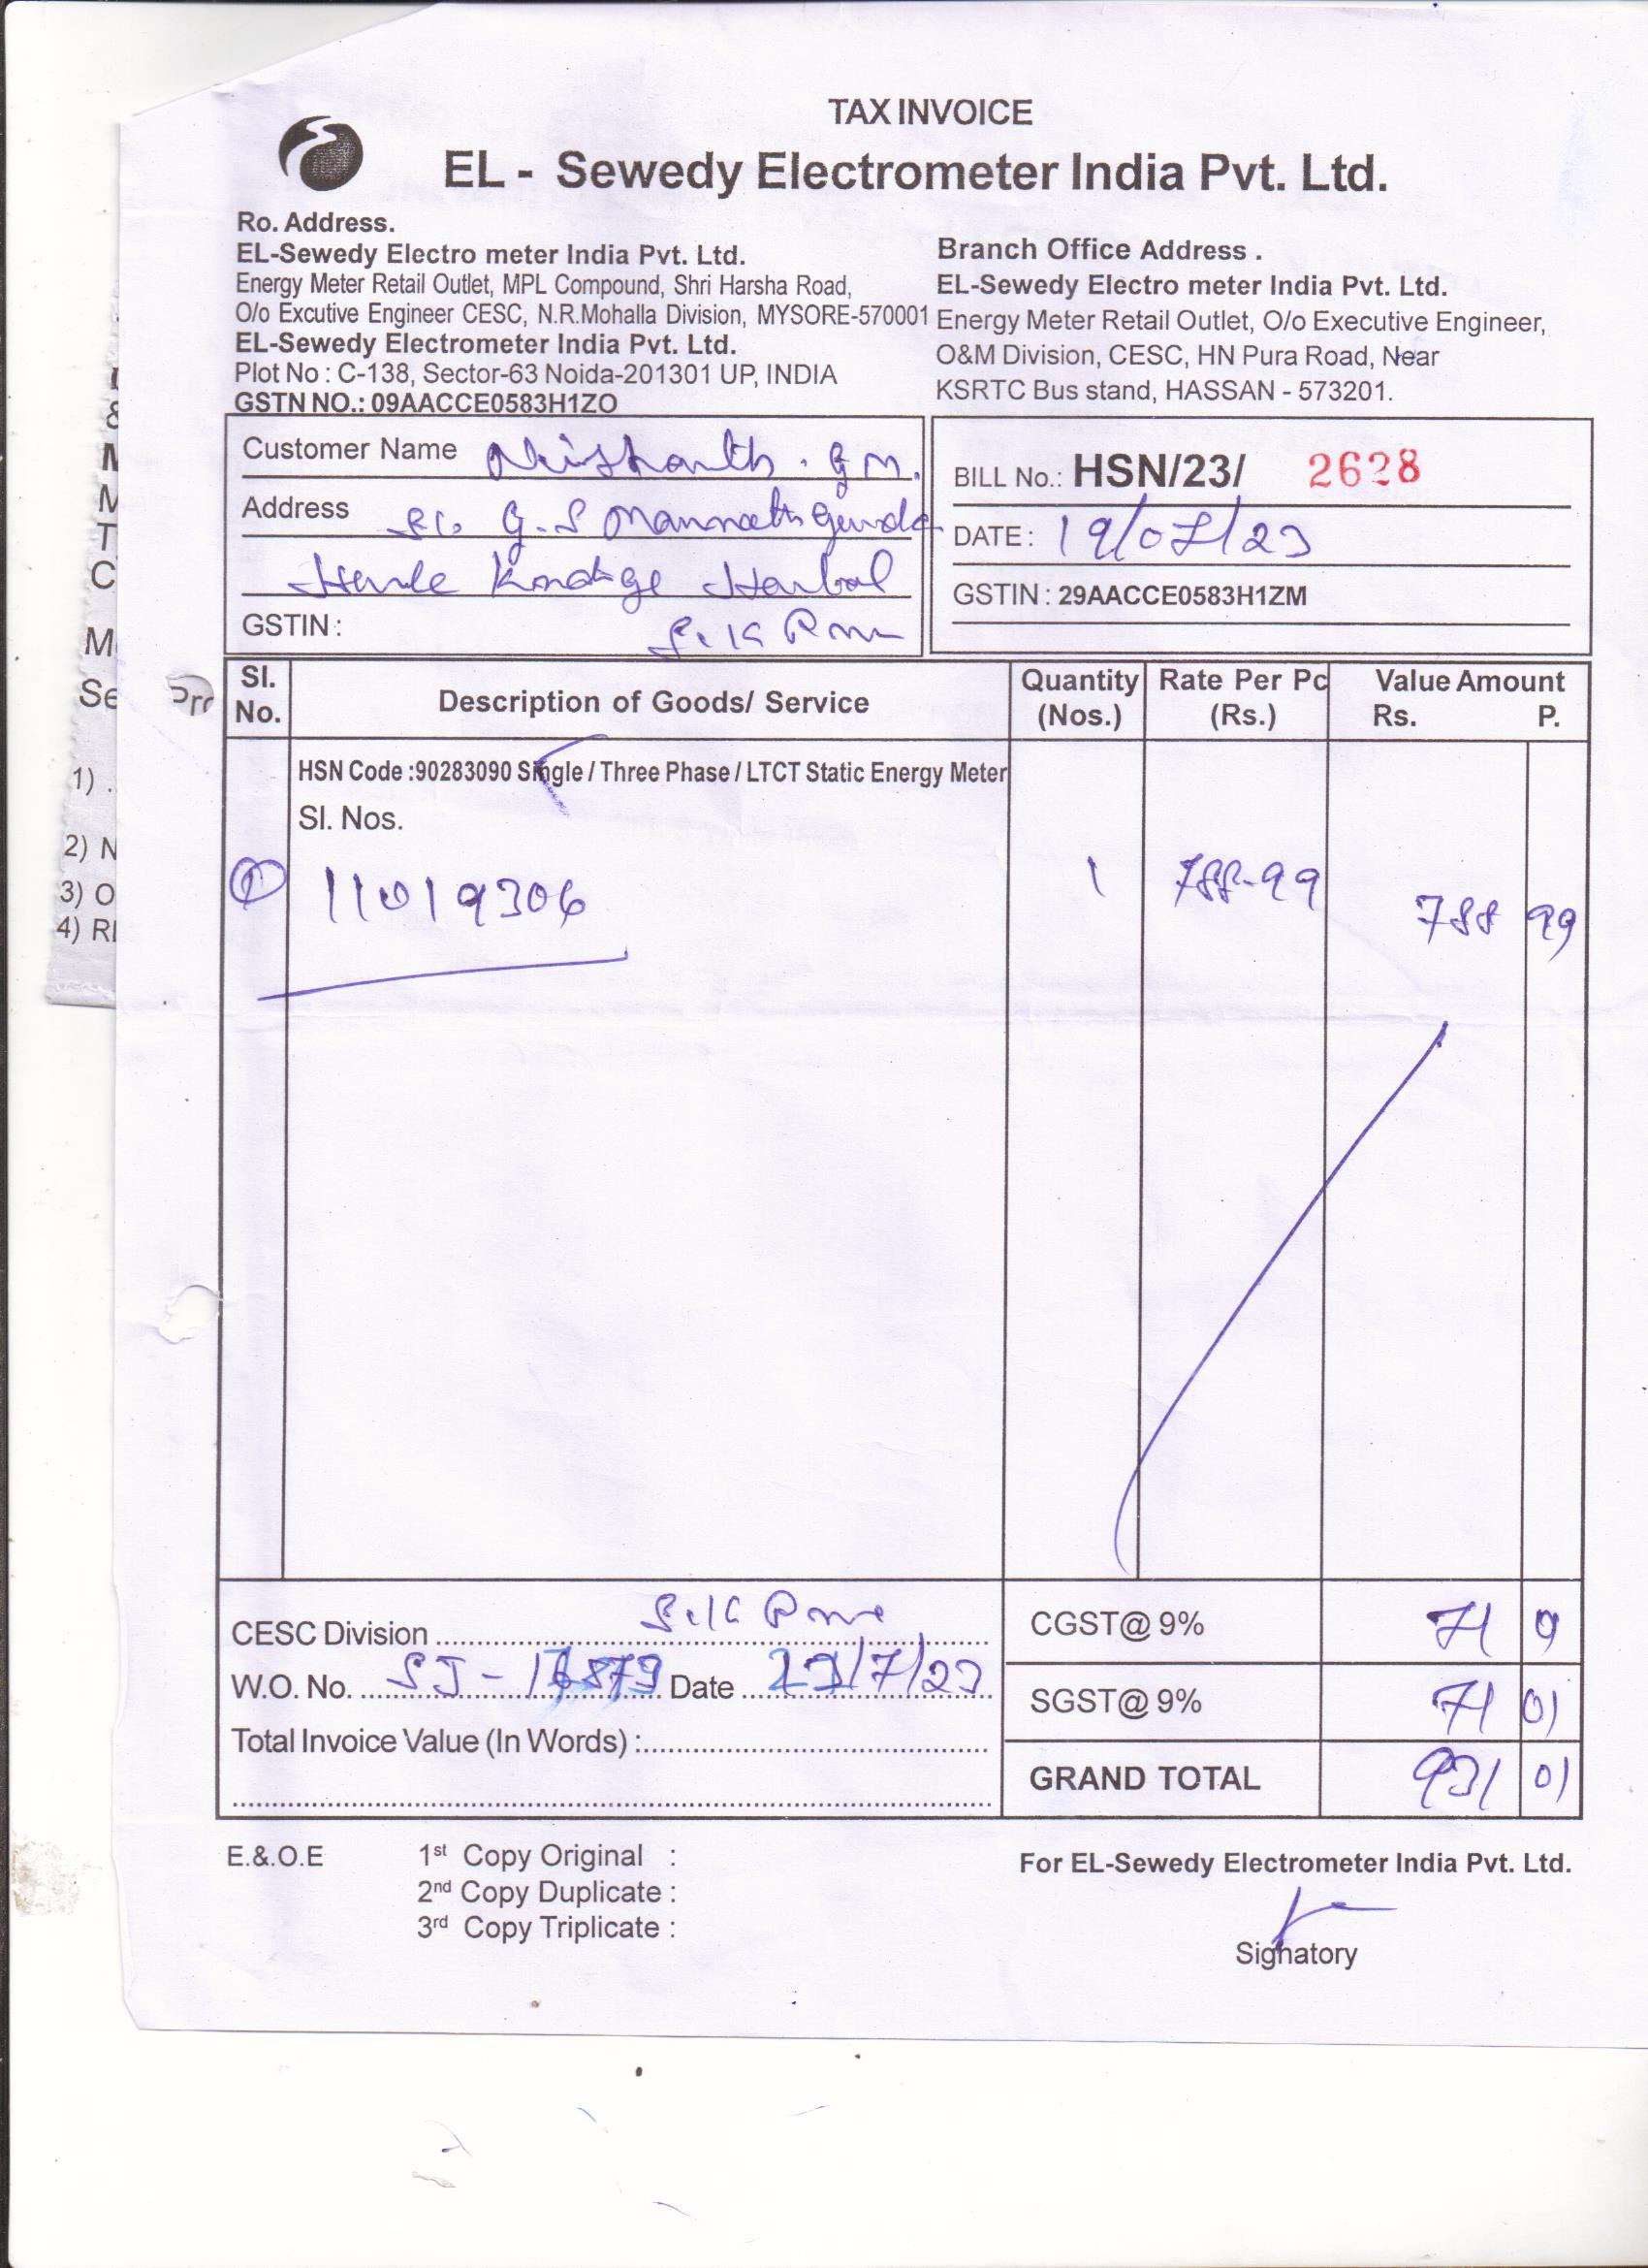 TAX INVOICE
EL - Sewedy Electrometer India Pvt. Ltd.
Ro. Address.
EL-Sewedy Electro meter India Pvt. Ltd.
Energy Meter Retail Outlet, MPL Compound, Shri Harsha Road,
O/o Excutive Engineer CESC, N.R.Mohalla Division, MYSORE-570001
EL-Sewedy Electrometer India Pvt. Ltd.
Plot No : C-138, Sector-63 Noida-201301 UP, INDIA
GSTN NO.: 09AACCE0583H1ZO
Branch Office Address .
EL-Sewedy Electro meter India Pvt. Ltd.
Energy Meter Retail Outlet, O/o Executive Engineer,
O&M Division, CESC, HN Pura Road, Near
KSRTC Bus stand, HASSAN - 573201.
Customer Name Nishanth . G M.
Address G. S
GSTIN :
BILL No.: HSN/23/ 2628
DATE : 19/07/23
GSTIN : 29AACCE0583H1ZM
Sl. No. Description of Goods/ Service Quantity (Nos.) Rate Per Pc (Rs.) Value Amount Rs. P.
HSN Code :90283090 Single / Three Phase / LTCT Static Energy Meter
Sl. Nos.
1 11019306 1 788-99 788 99
CESC Division
W.O. No. SJ - Date /7/23
Total Invoice Value (In Words) :
CGST@ 9% 71
SGST@ 9% 71 01
GRAND TOTAL 931 01
E.&.O.E
1st Copy Original :
2nd Copy Duplicate :
3rd Copy Triplicate :
For EL-Sewedy Electrometer India Pvt. Ltd.
Signatory
M
T
C
M
Se
Pro
1) .
2) N
3) O
4) RI